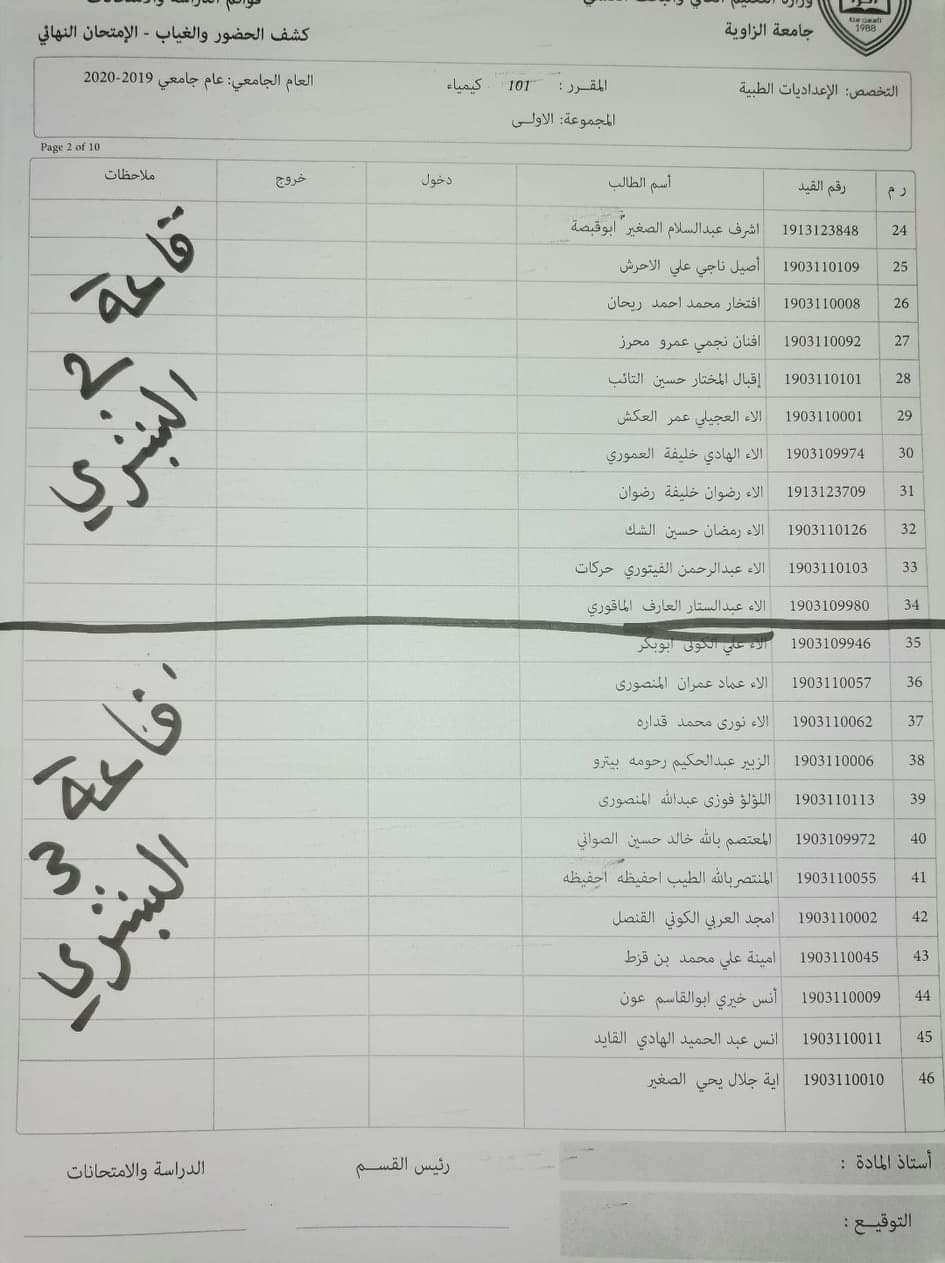 وزارة التعليم العالي والبحث العلمي
قوائم الدراسة والامتحانات
جامعة الزاوية
كشف الحضور والغياب - الإمتحان النهائي
1988
التخصص: الإعداديات الطبية
المقـرر : 101 كيمياء
العام الجامعي: عام جامعي 2019-2020
المجموعة: الاولـى
Page 2 of 10
ر م رقم القيد أسم الطالب دخول خروج ملاحظات
24 1913123848 اشرف عبدالسلام الصغير ابوقبصة
25 1903110109 أصيل ناجي علي الاحرش
26 1903110008 افتخار محمد احمد ريحان
27 1903110092 افنان نجمي عمرو محرز
28 1903110101 إقبال المختار حسين التائب
29 1903110001 الاء العجيلي عمر العكش
30 1903109974 الاء الهادي خليفة العموري
31 1913123709 الاء رضوان خليفة رضوان
32 1903110126 الاء رمضان حسين الشك
33 1903110103 الاء عبدالرحمن الفيتوري حركات
34 1903109980 الاء عبدالستار العارف الماقوري
قاعة 2 البشري
35 1903109946 الاء علي الكوني ابوبكر
36 1903110057 الاء عماد عمران المنصورى
37 1903110062 الاء نورى محمد قداره
38 1903110006 الزبير عبدالحكيم رحومه بيترو
39 1903110113 اللؤلؤ فوزى عبدالله المنصورى
40 1903109972 المعتصم بالله خالد حسين الصواني
41 1903110055 المنتصربالله الطيب احفيظه احفيظه
42 1903110002 امجد العربي الكوني القنصل
43 1903110045 امينة علي محمد بن قزط
44 1903110009 أنس خيري ابوالقاسم عون
45 1903110011 انس عبد الحميد الهادي القايد
46 1903110010 اية جلال يحي الصغير
قاعة 3 البشري
أستاذ المادة :
رئيس القسـم
الدراسة والامتحانات
التوقيـع :